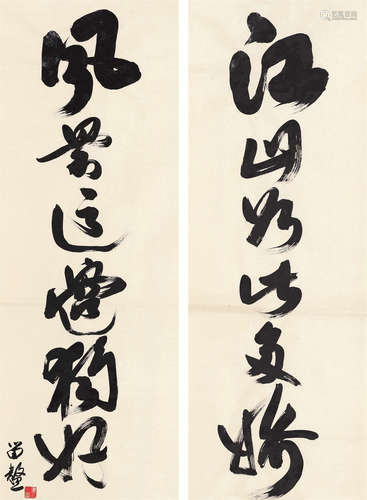 江山如此多娇
风景这边独好